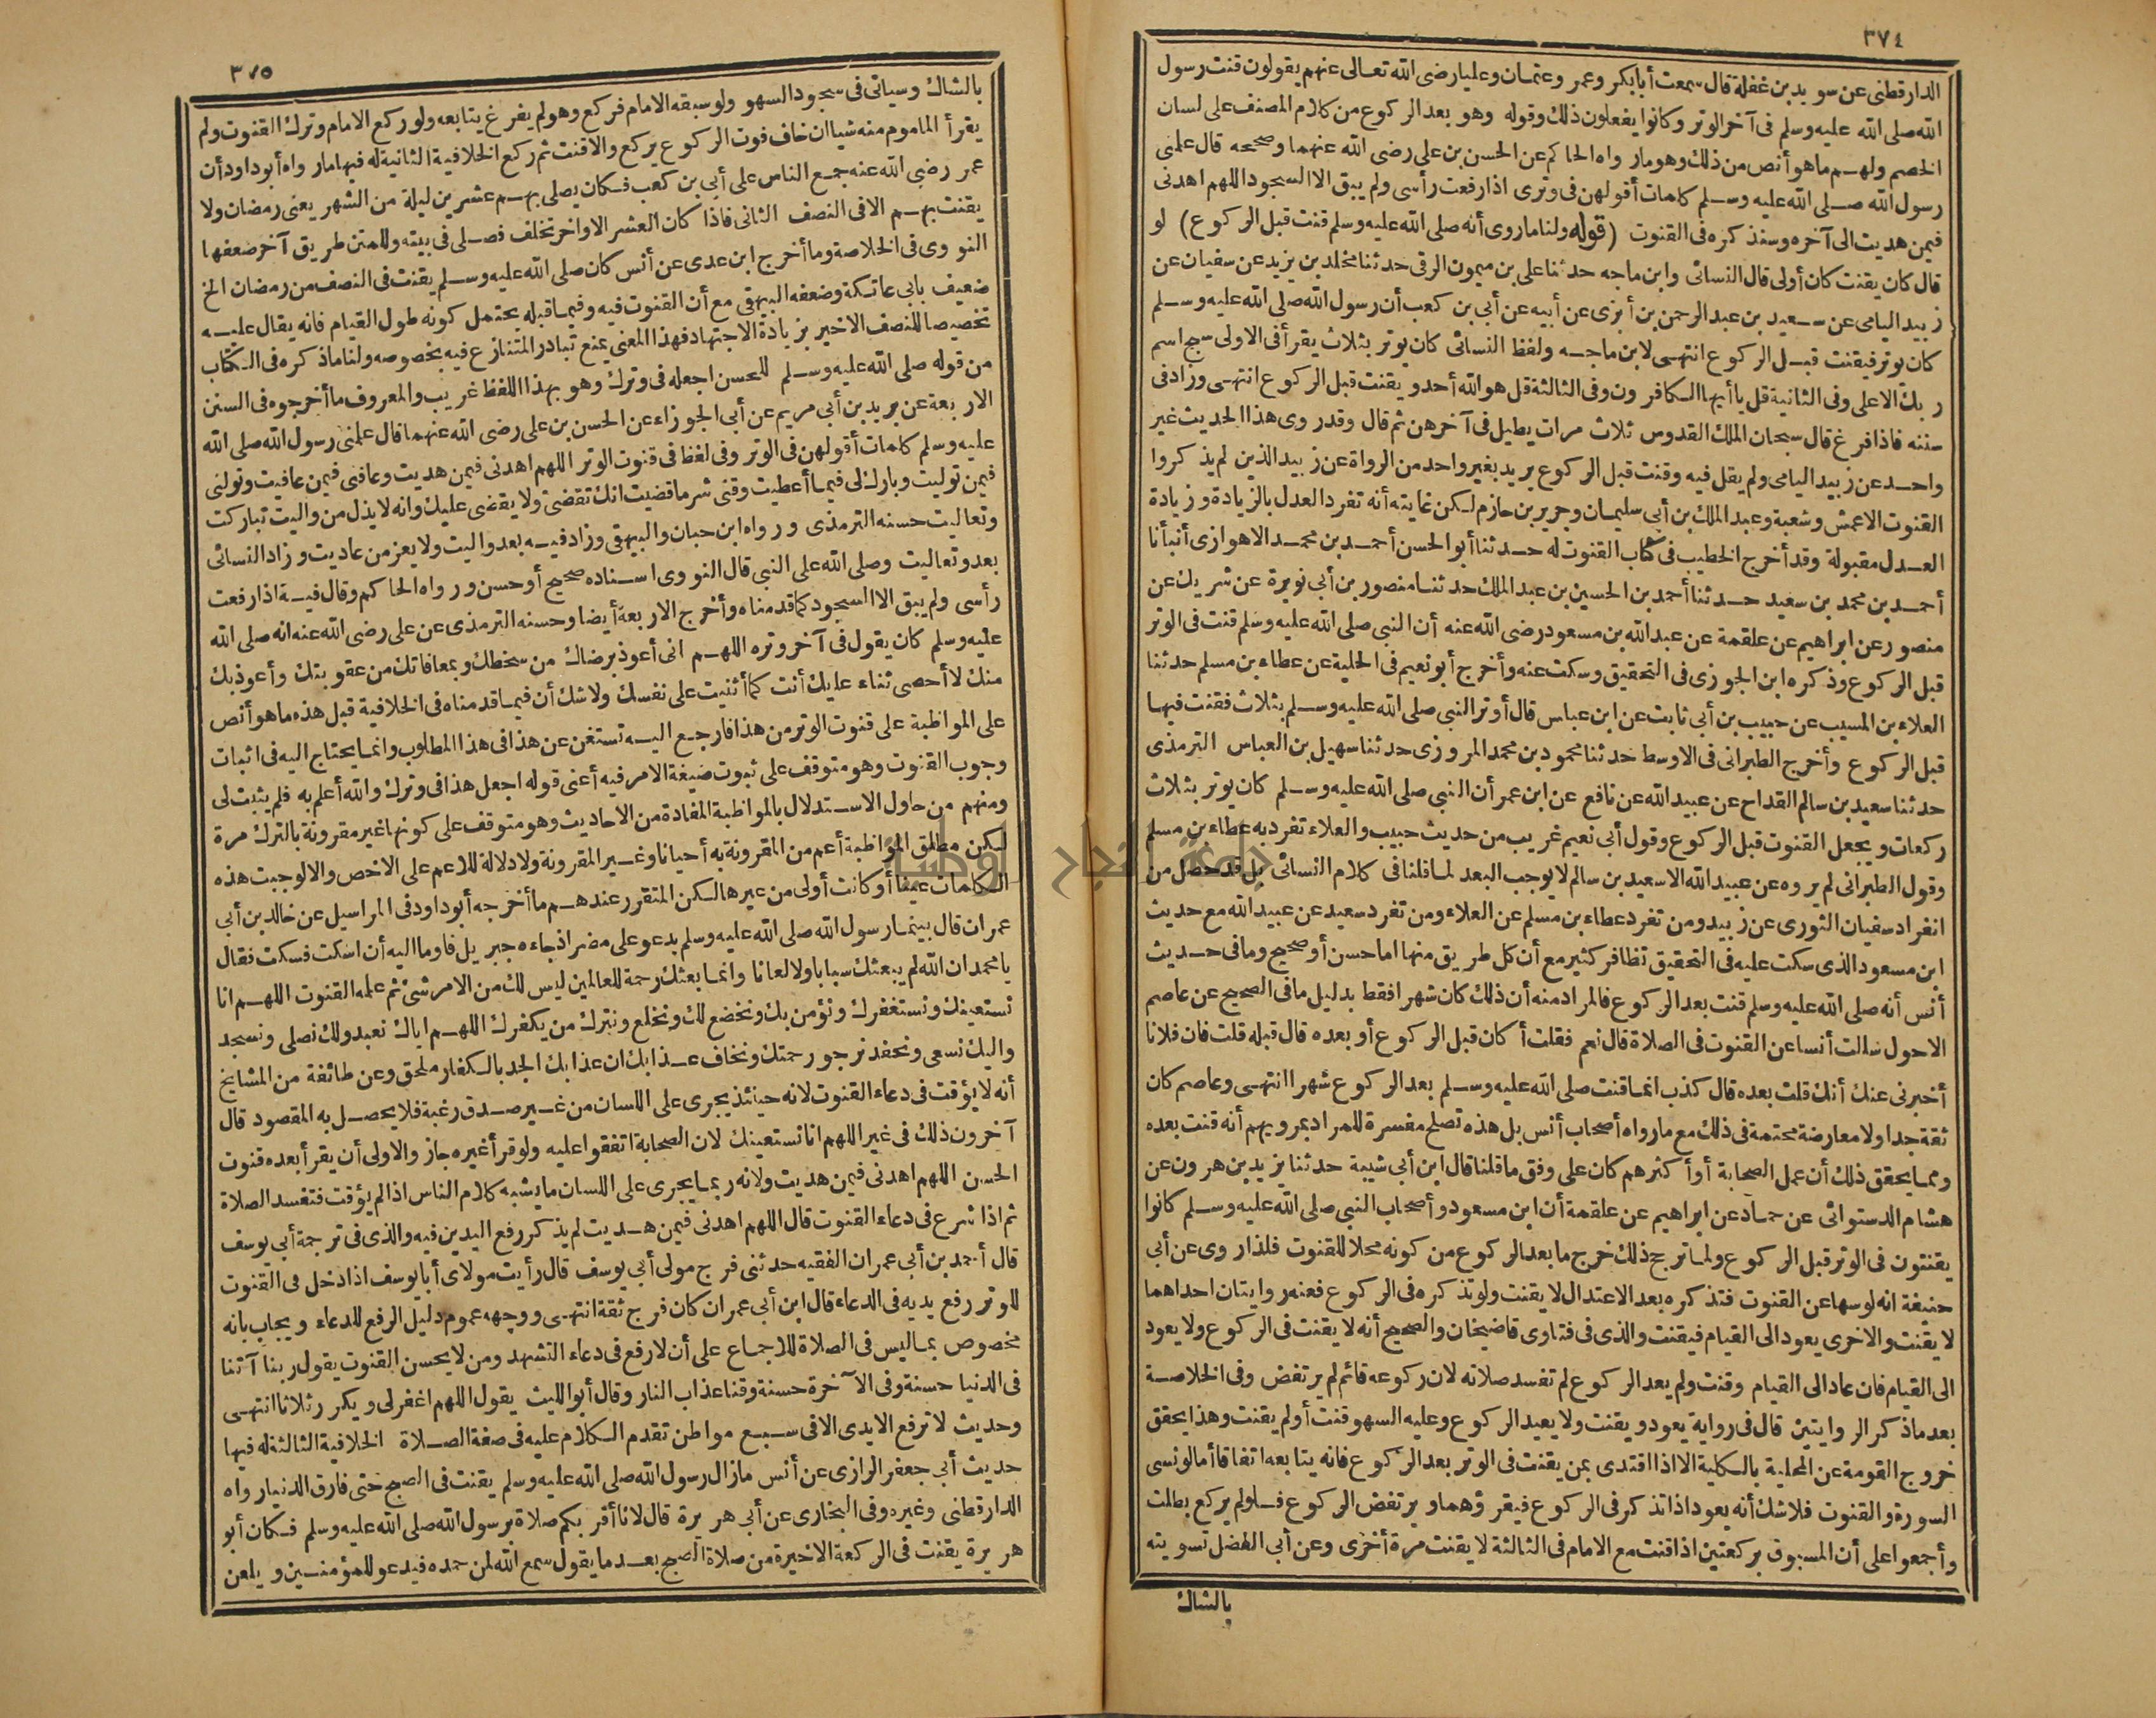 ٣٧٤
الدارقطنى عن سويد بن غفلة قال سمعت أبا بكر وعمر وعثمان وعليا رضى الله تعالى عنهم يقولون قنت رسول
الله صلى الله عليه وسلم فى آخر الوتر وكانوا يفعلون ذلك وقوله وهو بعد الركوع من كلام المصنف على لسان
الخصم ولهم ما هو أنص من ذلك وهو ما رواه الحاكم عن الحسن بن على رضى الله عنهما وصححه قال علمنى
رسول الله صلى الله عليه وسلم كلمات أقولهن فى وترى اذا رفعت رأسى ولم يبق الا السجود اللهم اهدنى
فيمن هديت الى آخره وسنذكره فى القنوت (قوله ولنا ما روى أنه صلى الله عليه وسلم قنت قبل الركوع) لو
قال كان يقنت كان أولى قال النسائى وابن ماجه حدثنا على بن ميمون الرقى حدثنا مخلد بن يزيد عن سفيان عن
زبيد اليامى عن سعيد بن عبد الرحمن بن أبزى عن أبيه عن أبى بن كعب أن رسول الله صلى الله عليه وسلم
كان يوتر فيقنت قبل الركوع انتهى لابن ماجه ولفظ النسائى كان يوتر بثلاث يقرأ فى الاولى سبح اسم
ربك الاعلى وفى الثانية قل يا أيها الكافرون وفى الثالثة قل هو الله أحد ويقنت قبل الركوع انتهى وزاد فى
سننه فاذا فرغ قال سبحان الملك القدوس ثلاث مرات يطيل فى آخرهن ثم قال وقد روى هذا الحديث غير
واحد عن زبيد اليامى ولم يقل فيه وقنت قبل الركوع يريد بغير واحد من الرواة عن زبيد الذين لم يذكروا
القنوت الاعمش وشعبة وعبد الملك بن أبى سليمان وجرير بن حازم لكن غايته أنه تفرد العدل بالزيادة وزيادة
العدل مقبولة وقد أخرج الخطيب فى كتاب القنوت له حدثنا أبو الحسن أحمد بن محمد الاهوازى أنبأنا
أحمد بن محمد بن سعيد حدثنا أحمد بن الحسين بن عبد الملك حدثنا منصور بن أبى نويرة عن شريك عن
منصور عن ابراهيم عن علقمة عن عبد الله بن مسعود رضى الله عنه أن النبى صلى الله عليه وسلم قنت فى الوتر
قبل الركوع وذكره ابن الجوزى فى التحقيق وسكت عنه وأخرج أبو نعيم فى الحلية عن عطاء بن مسلم حدثنا
العلاء بن المسيب عن حبيب بن أبى ثابت عن ابن عباس قال أوتر النبى صلى الله عليه وسلم بثلاث فقنت فيها
قبل الركوع وأخرج الطبرانى فى الاوسط حدثنا محمود بن محمد المروزى حدثنا سهيل بن العباس الترمذى
حدثنا سعيد بن سالم القداح عن عبيد الله عن نافع عن ابن عمر أن النبى صلى الله عليه وسلم كان يوتر بثلاث
ركعات ويجعل القنوت قبل الركوع وقول أبى نعيم غريب من حديث حبيب والعلاء تفرد به عطاء بن مسلم
وقول الطبرانى لم يروه عن عبيد الله الا سعيد بن سالم لا يوجب البعد لما قلنا فى كلام النسائى بل قد حصل من
انفراد سفيان الثورى عن زبيد ومن تفرد عطاء بن مسلم عن العلاء ومن تفرد سعيد عن عبيد الله مع حديث
ابن مسعود الذى سكت عليه فى التحقيق تظافر كثير مع أن كل طريق منها اما حسن أو صحيح وما فى حديث
أنس أنه صلى الله عليه وسلم قنت بعد الركوع فالمراد منه أن ذلك كان شهرا فقط بدليل ما فى الصحيح عن عاصم
الاحول سالت أنسا عن القنوت فى الصلاة قال نعم فقلت أكان قبل الركوع أو بعده قال قبله قلت فان فلانا
أخبرنى عنك أنك قلت بعده قال كذب انما قنت صلى الله عليه وسلم بعد الركوع شهرا انتهى وعاصم كان
ثقة جدا ولا معارضة محتمة فى ذلك مع ما رواه أصحاب أنس بل هذه تصلح مفسرة للمراد بمرويهم أنه قنت بعده
ومما يحقق ذلك أن عمل الصحابة أو أكثرهم كان على وفق ما قلنا قال ابن أبى شيبة حدثنا يزيد بن هرون عن
هشام الدستوائى عن حماد عن ابراهيم عن علقمة أن ابن مسعود وأصحاب النبى صلى الله عليه وسلم كانوا
يقنتون فى الوتر قبل الركوع ولما ترجح ذلك خرج ما بعد الركوع من كونه محلا للقنوت فلذا روى عن أبى
حنيفة انه لو سها عن القنوت فتذكره بعد الاعتدال لا يقنت ولو تذكره فى الركوع فعنه روايتان احداهما
لا يقنت والاخرى يعود الى القيام فيقنت والذى فى فتاوى قاضيخان والصحيح أنه لا يقنت فى الركوع ولا يعود
الى القيام فان عاد الى القيام وقنت ولم يعد الركوع لم تفسد صلاته لان ركوعه قائم لم يرتفض وفى الخلاصة
بعد ما ذكر الروايتين قال فى رواية يعود ويقنت ولا يعيد الركوع وعليه السهو قنت أو لم يقنت وهذا يحقق
خروج القومة عن المحلية بالكلية الا اذا اقتدى بمن يقنت فى الوتر بعد الركوع فانه يتابعه اتفاقا أما لو نسى
السورة والقنوت فلا شك أنه يعود اذا تذكر فى الركوع فيقرؤهما ويرتفض الركوع فلو لم يركع بطلت
وأجمعوا على أن المسبوق بركعتين اذا قنت مع الامام فى الثالثة لا يقنت مرة أخرى وعن أبى الفضل تسويته
بالشاك
٣٧٥
بالشاك وسياتى فى سجود السهو ولو سبقه الامام فركع وهو لم يفرغ يتابعه ولو ركع الامام وترك القنوت ولم
يقرأ الماموم منه شيا ان خاف فوت الركوع يركع والا قنت ثم ركع الخلافية الثانية له فيها ما رواه أبو داود أن
عمر رضى الله عنه جمع الناس على أبى بن كعب فكان يصلى بهم عشرين ليلة من الشهر يعنى رمضان ولا
يقنت بهم الا فى النصف الثانى فاذا كان العشر الاواخر تخلف فصلى فى بيته وللمتن طريق آخر ضعفها
النووى فى الخلاصة وما أخرج ابن عدى عن أنس كان صلى الله عليه وسلم يقنت فى النصف من رمضان الخ
ضعيف بابى عاتكة وضعفه البيهقى مع أن القنوت فيه وفيما قبله يحتمل كونه طول القيام فانه يقال عليه
تخصيصا للنصف الاخير بزيادة الاجتهاد فهذا المعنى يمنع تبادر المتنازع فيه بخصوصه ولنا ما ذكره فى الكتاب
من قوله صلى الله عليه وسلم للحسن اجعله فى وترك وهو بهذا اللفظ غريب والمعروف ما أخرجوه فى السنن
الاربعة عن بريد بن أبى مريم عن أبى الجوزاء عن الحسن بن على رضى الله عنهما قال علمنى رسول الله صلى الله
عليه وسلم كلمات أقولهن فى الوتر وفى لفظ فى قنوت الوتر اللهم اهدنى فيمن هديت وعافنى فيمن عافيت وتولنى
فيمن توليت وبارك لى فيما أعطيت وقنى شر ما قضيت انك تقضى ولا يقضى عليك وانه لا يذل من واليت تباركت
وتعاليت حسنه الترمذى ورواه ابن حبان والبيهقى وزاد فيه بعد واليت ولا يعز من عاديت وزاد النسائى
بعد وتعاليت وصلى الله على النبى قال النووى اسناده صحيح أو حسن ورواه الحاكم وقال فيه اذا رفعت
رأسى ولم يبق الا السجود كما قدمناه وأخرج الاربعة أيضا وحسنه الترمذى عن على رضى الله عنه انه صلى الله
عليه وسلم كان يقول فى آخر وتره اللهم انى أعوذ برضاك من سخطك وبمعافاتك من عقوبتك وأعوذ بك
منك لا أحصى ثناء عليك أنت كما أثنيت على نفسك ولا شك أن فيما قدمناه فى الخلافية قبل هذه ما هو أنص
على المواظبة على قنوت الوتر من هذا فارجع اليه تستغن عن هذا فى هذا المطلوب وانما يحتاج اليه فى اثبات
وجوب القنوت وهو متوقف على ثبوت صيغة الامر فيه أعنى قوله اجعل هذا فى وترك والله أعلم به فلم يثبت لى
ومنهم من حاول الاستدلال بالمواظبة المفادة من الاحاديث وهو متوقف على كونها غير مقرونة بالترك مرة
لكن مطلق المواظبة أعم من المقرونة به أحيانا وغير المقرونة ولا دلالة للاعم على الاخص والا لوجبت هذه
الكلمات عينا أو كانت أولى من غيرها لكن المتقرر عندهم ما أخرجه أبو داود فى المراسيل عن خالد بن أبى
عمران قال بينما رسول الله صلى الله عليه وسلم يدعو على مضر اذ جاءه جبريل فاوما اليه أن اسكت فسكت فقال
يا محمد ان الله لم يبعثك سبابا ولا لعانا وانما بعثك رحمة للعالمين ليس لك من الامر شئ ثم علمه القنوت اللهم انا
نستعينك ونستغفرك ونؤمن بك ونخضع لك ونخلع ونترك من يكفرك اللهم اياك نعبد ولك نصلى ونسجد
واليك نسعى ونحفد نرجو رحمتك ونخاف عذابك ان عذابك الجد بالكفار ملحق وعن طائفة من المشايخ
أنه لا يؤقت فى دعاء القنوت لانه حينئذ يجرى على اللسان من غير صدق رغبة فلا يحصل به المقصود قال
آخرون ذلك فى غير اللهم انا نستعينك لان الصحابة اتفقوا عليه ولو قرأ غيره جاز والاولى أن يقرأ بعده قنوت
الحسن اللهم اهدنى فيمن هديت ولانه ربما يجرى على اللسان ما يشبه كلام الناس اذا لم يؤقت فتفسد الصلاة
ثم اذا شرع فى دعاء القنوت قال اللهم اهدنى فيمن هديت لم يذكر رفع اليدين فيه والذى فى ترجمة أبى يوسف
قال أحمد بن أبى عمران الفقيه حدثنى فرج مولى أبى يوسف قال رأيت مولاى أبا يوسف اذا دخل فى القنوت
للوتر رفع يديه فى الدعاء قال ابن أبى عمران كان فرج ثقة انتهى ووجهه عموم دليل الرفع للدعاء ويجاب بانه
مخصوص بما ليس فى الصلاة للاجماع على أن لا رفع فى دعاء التشهد ومن لا يحسن القنوت يقول ربنا آتنا
فى الدنيا حسنة وفى الآخرة حسنة وقنا عذاب النار وقال أبو الليث يقول اللهم اغفر لى ويكرر ثلاثا انتهى
وحديث لا ترفع الايدى الا فى سبع مواطن تقدم الكلام عليه فى صفة الصلاة الخلافية الثالثة له فيها
حديث أبى جعفر الرازى عن أنس ما زال رسول الله صلى الله عليه وسلم يقنت فى الصبح حتى فارق الدنيا رواه
الدارقطنى وغيره وفى البخارى عن أبى هريرة قال لانا أقربكم صلاة برسول الله صلى الله عليه وسلم فكان أبو
هريرة يقنت فى الركعة الاخيرة من صلاة الصبح بعد ما يقول سمع الله لمن حمده فيدعو للمؤمنين ويلعن